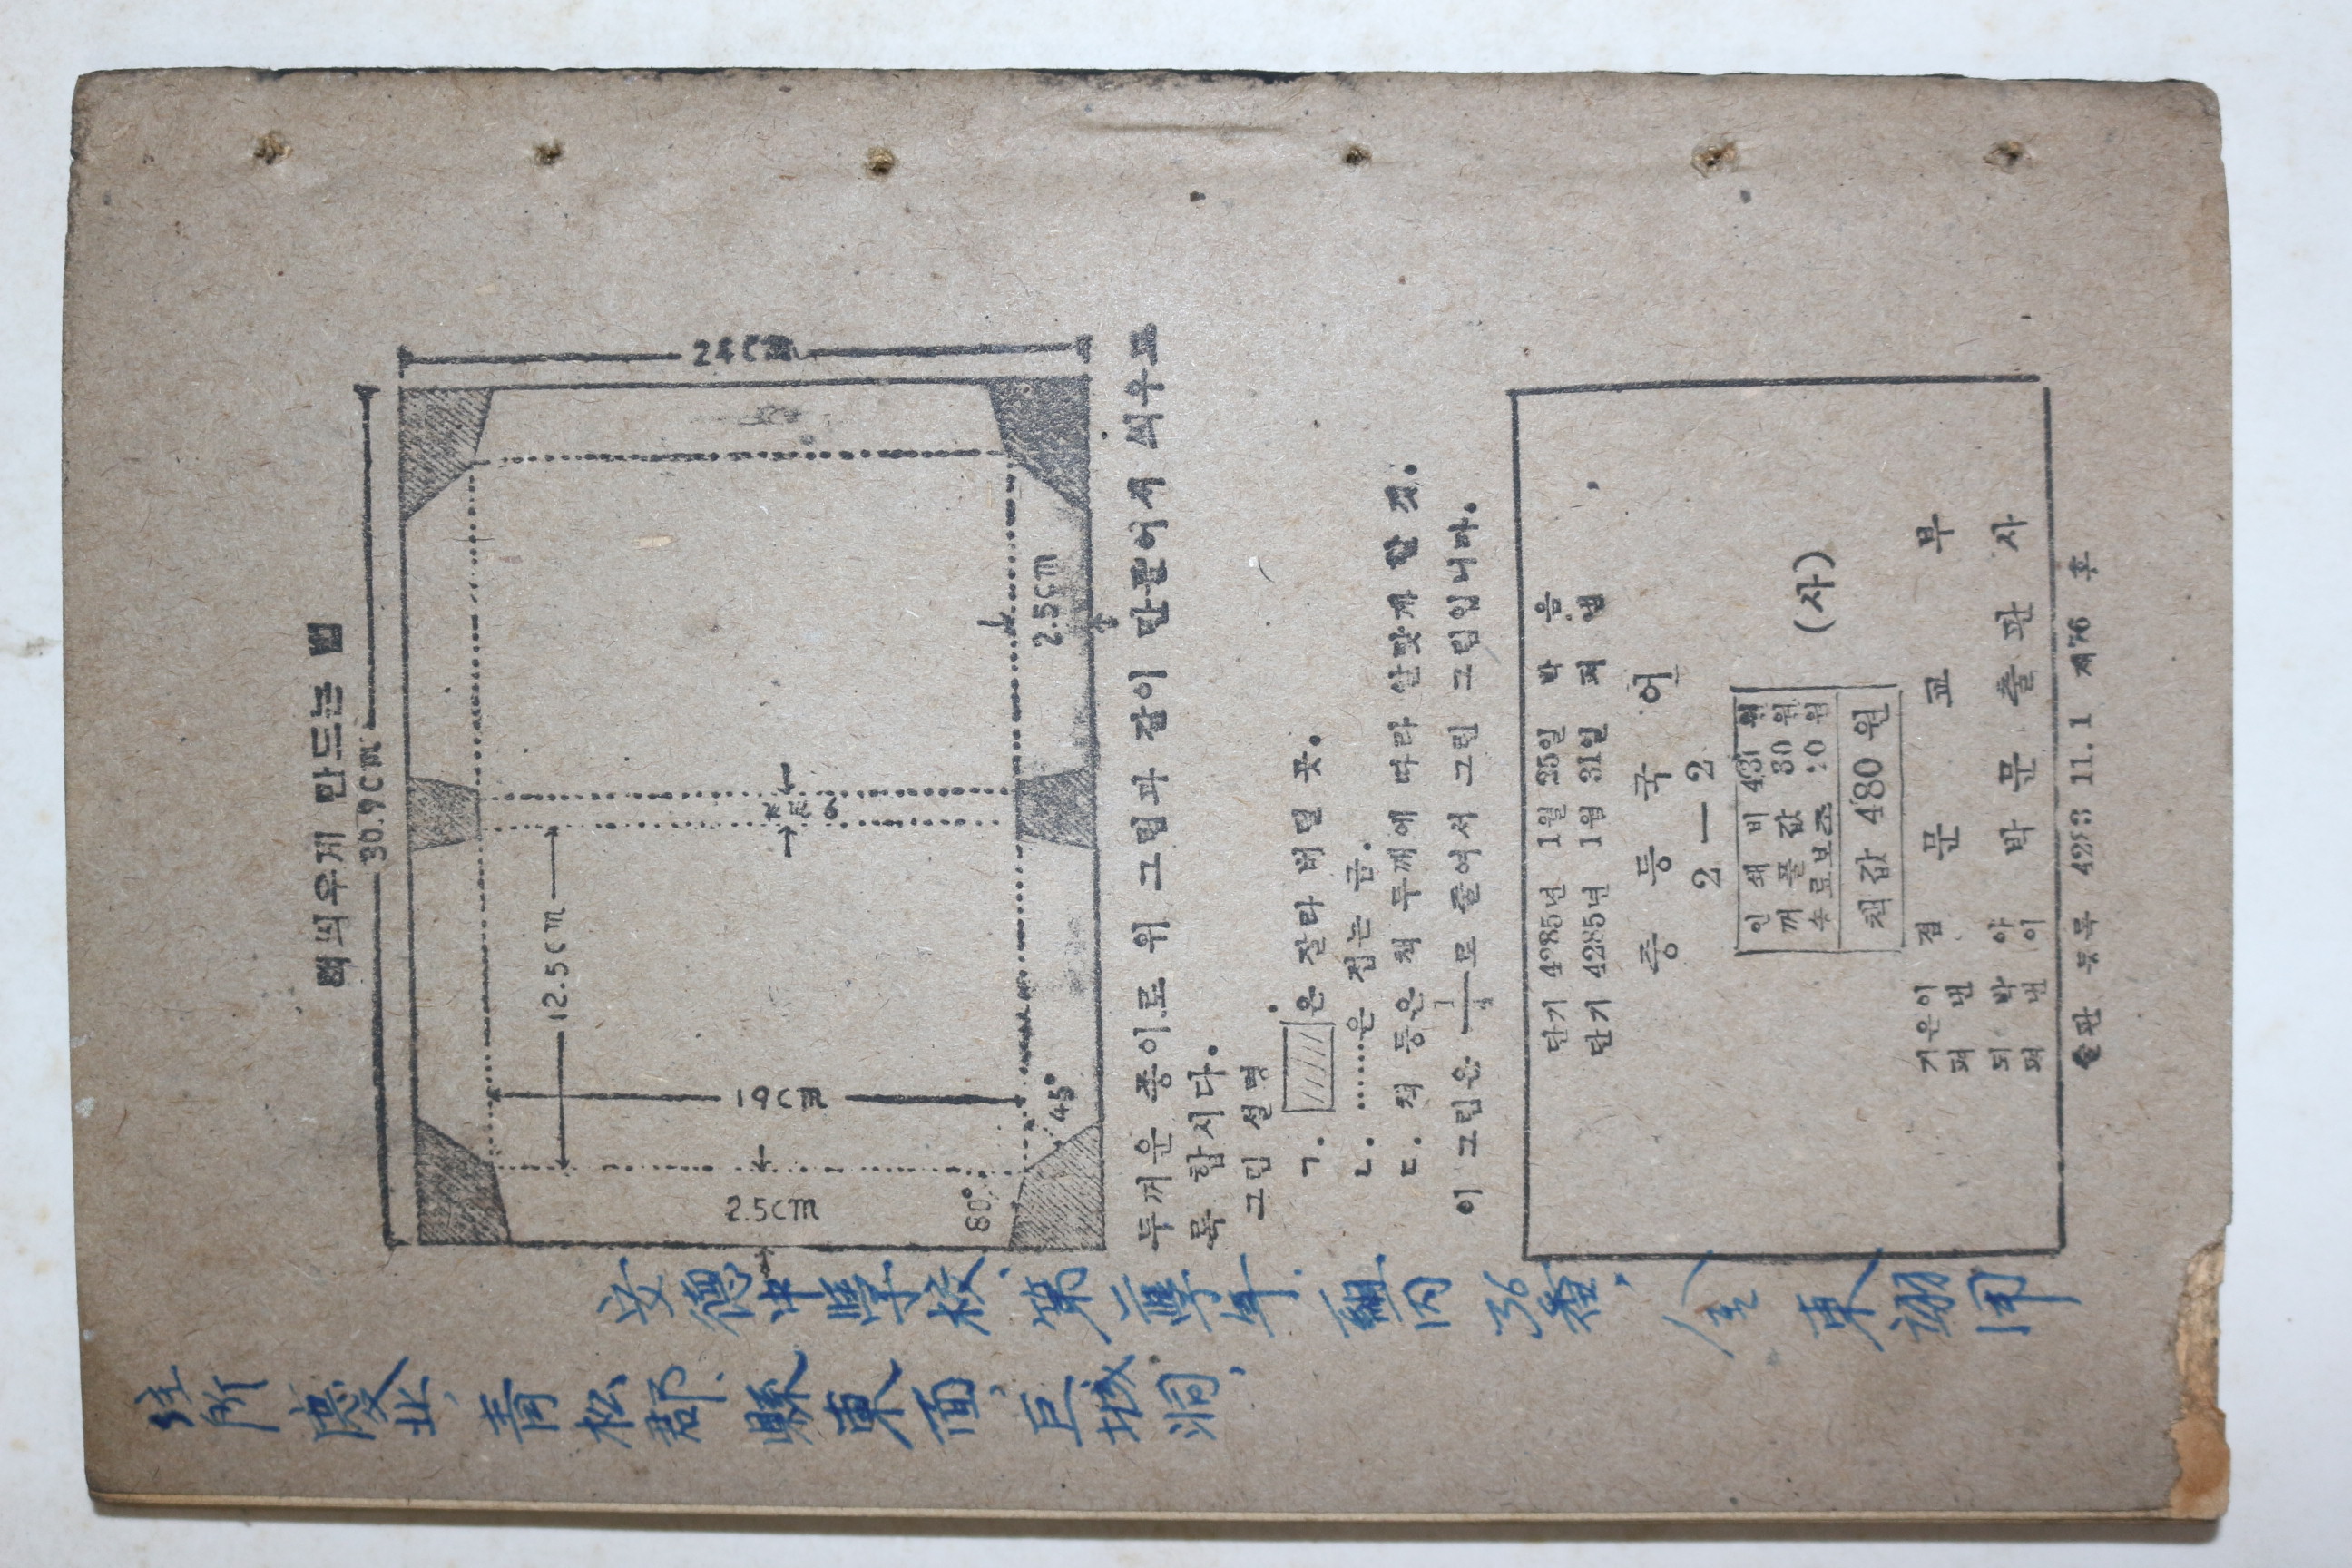 책 씌우게 만드는 법
30.9cm
24cm
12.5cm
책 두께
6
19cm
2.5cm
2.5cm
80°
45°
두꺼운 종이로 위 그림과 같이 만들어서 씌우고
록 합시다.
그림 설명
ㄱ. 은 잘라 버릴 곳.
ㄴ. ……은 접는 금.
ㄷ. 책 등은 책 두께에 따라 알맞게 할 것.
이 그림은 1/4로 줄여서 그린 그림입니다.
단기 4285년 1월 25일 박음
단기 4285년 1월 31일 펴냄
중등국어
2—2
인쇄비 431원
꺼풀값 30원
수료보조 20원
책값 480원
(사)
지은이 겸 펴낸이 문교부
되박아 펴낸이 박문출판사
출판 등록 4283 11.1 제76호
安德中學校 第二學年 組 內 36番 金東
住所 慶北 靑松郡 縣東面 巨城洞